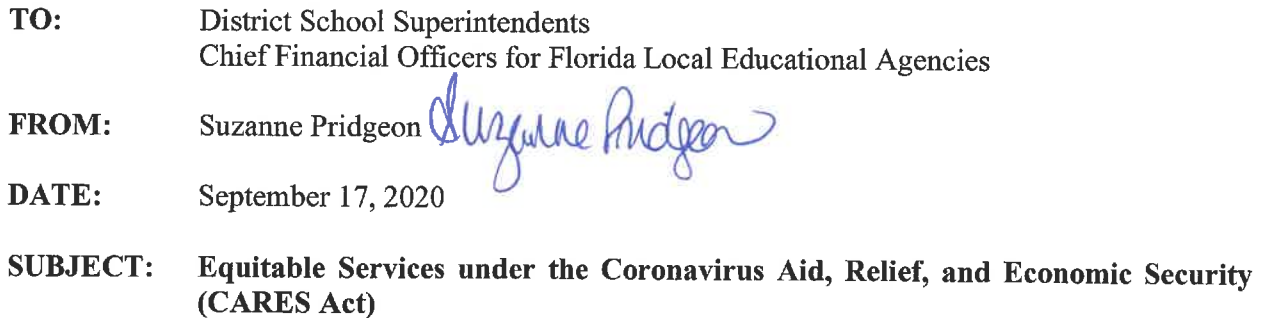 TO: District School Superintendents
Chief Financial Officers for Florida Local Educational Agencies
FROM: Suzanne Pridgeon Suzanne Pridgeon
DATE: September 17, 2020
SUBJECT: Equitable Services under the Coronavirus Aid, Relief, and Economic Security
(CARES Act)